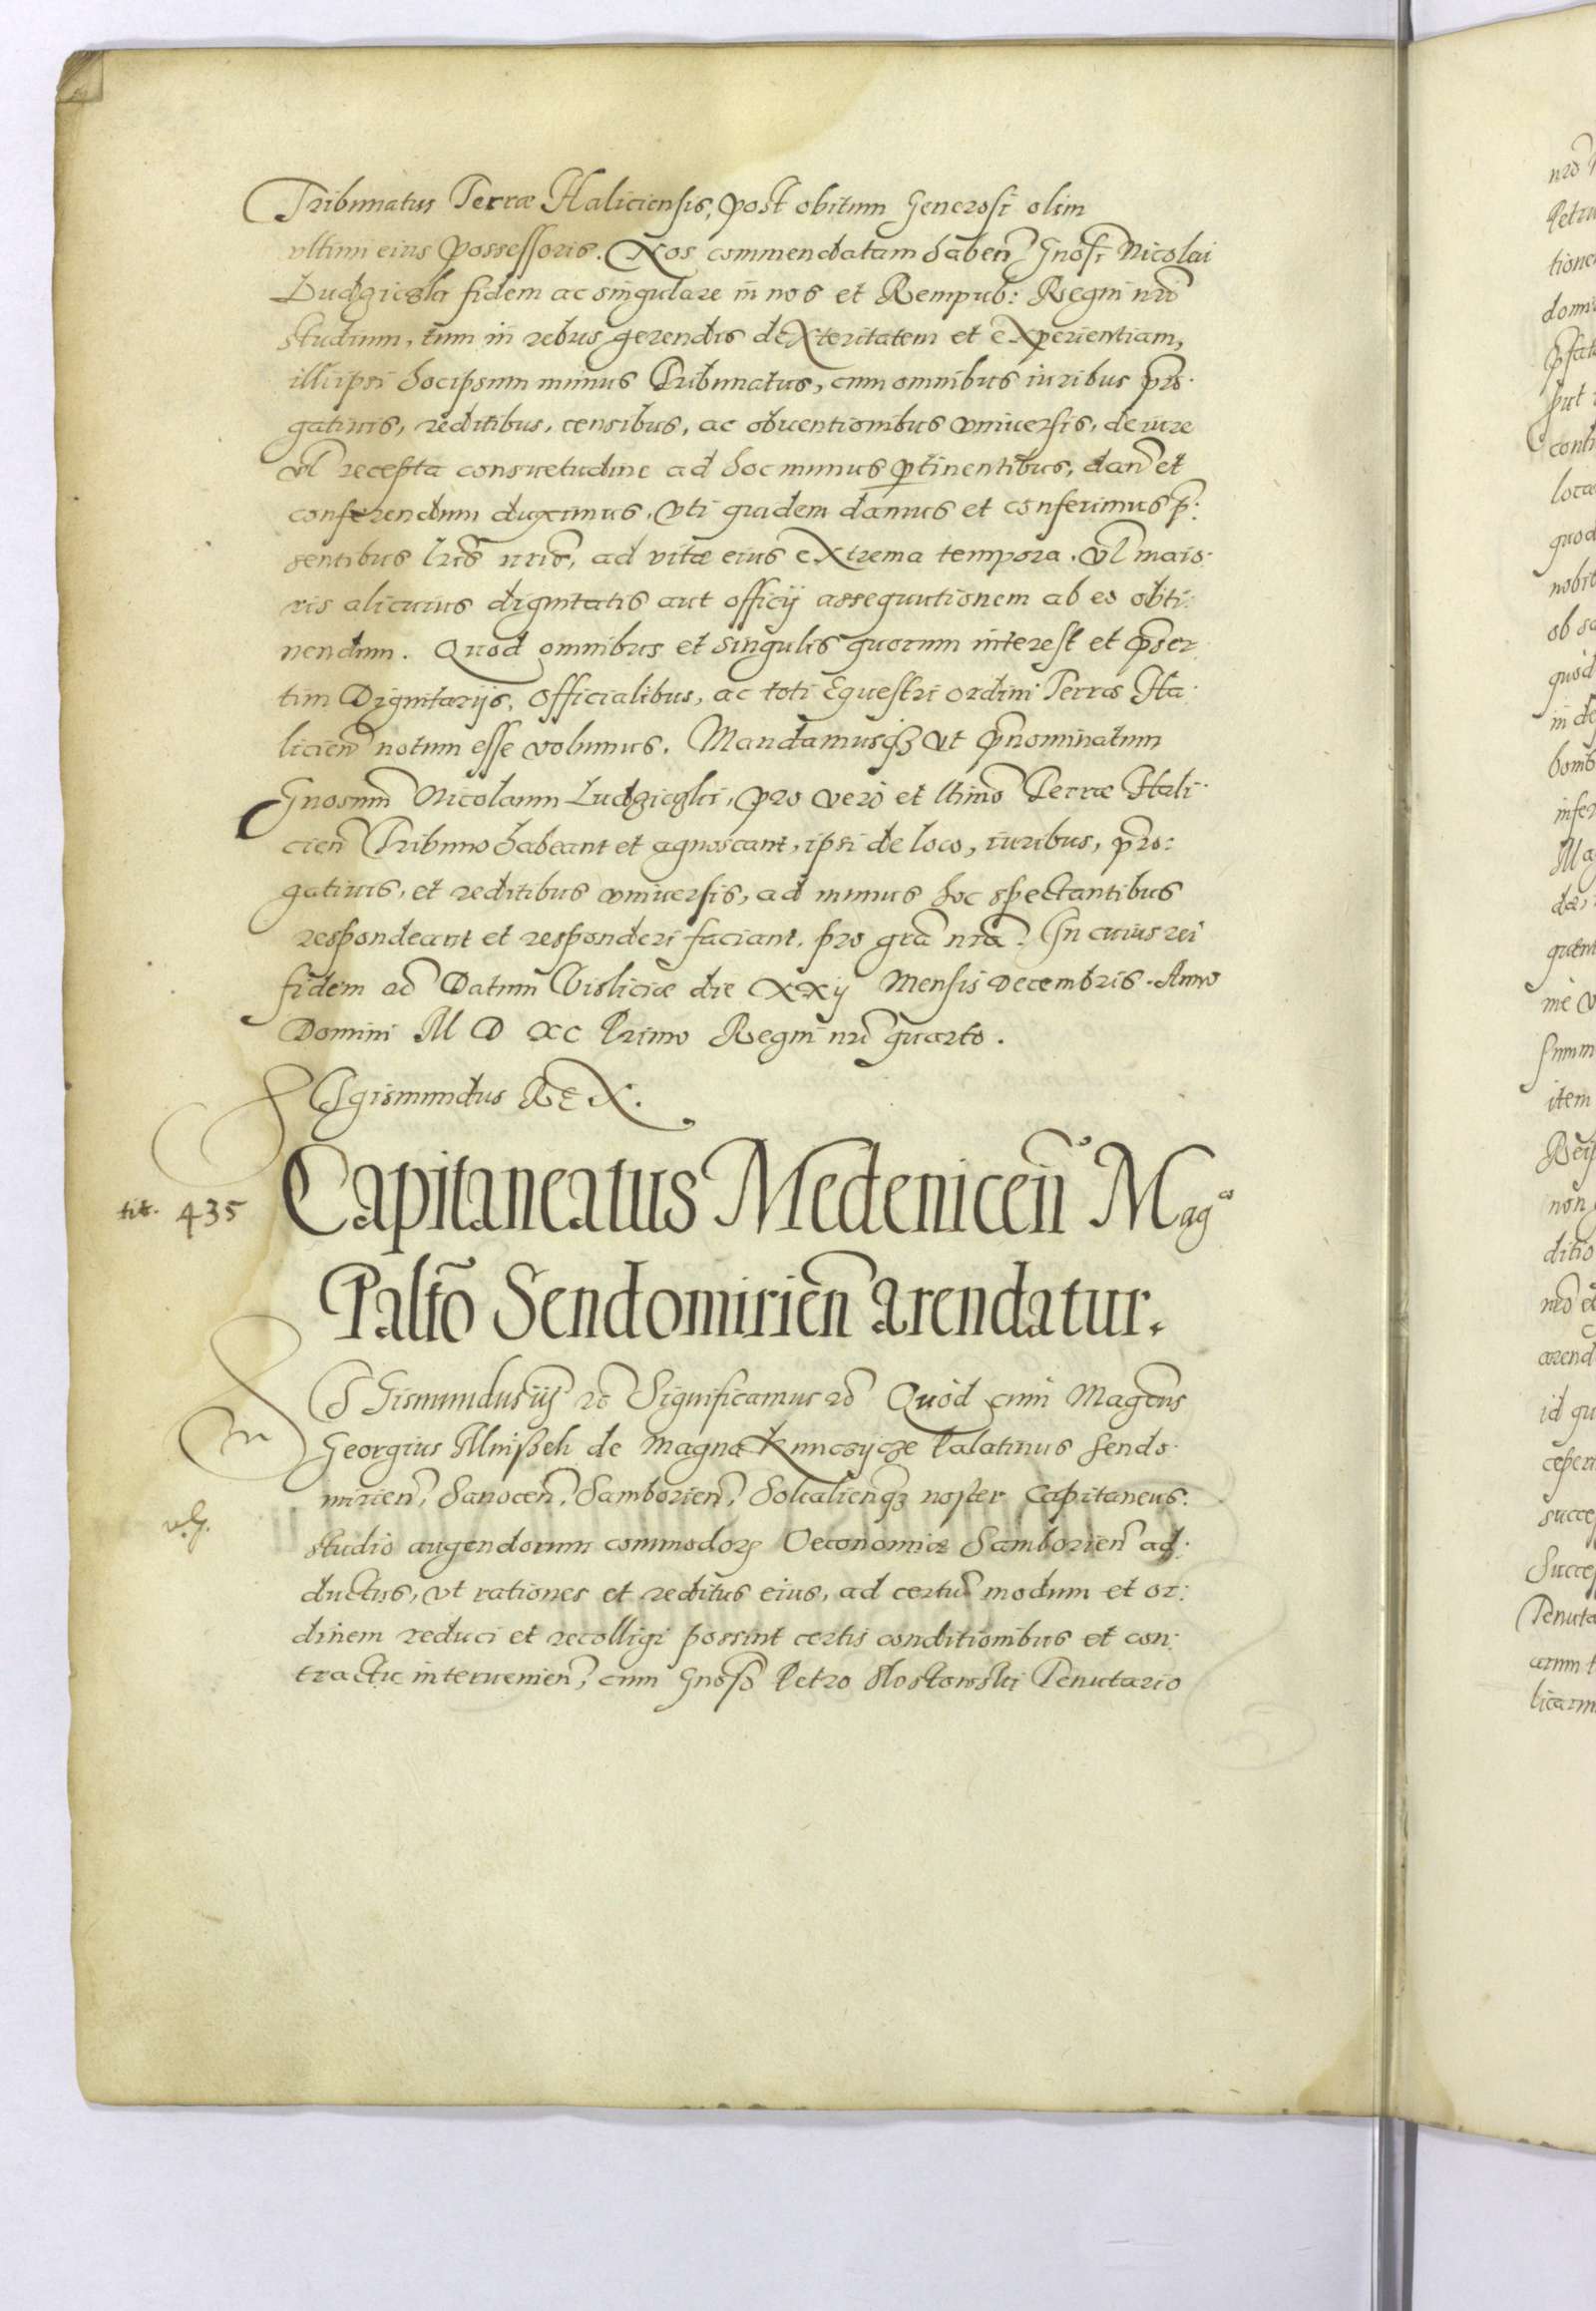 Tribunatus Terræ Haliciensis, post obitum Generosi olim
vltimi eius possessoris. Nos commendatam haben̄ Gnosi Nicolai
Ludzicski fidem ac singulare in nos et Rempub: Regni nr̄i
studium, tum in rebus gerendis dexteritatem et experientiam,
illi ipsi hoc ipsum munus Tribunatus, cum omnibus iuribus prero:
gatiuis, reditibus, censibus, ac obuentionibus vniuersis, de iure
vl̄ recepta consuetudine ad hoc munus ptinentibus, dan̄ et
conferendum duximus, vti quidem damus et conferimus p̄:
sentibus lr̄is nr̄is, ad vitæ eius extrema tempora. vl̄ maio:
ris alicuius dignitatis aut officij assequutionem ab eo obti:
nendum. Quod omnibus et singulis quorum interest et p̄ser
tim Dignitarijs, Officialibus, ac toti Equestri ordini Terræ Ha:
licien̄ notum esse volumus. Mandamusqȝ vt p̄nominatum
Gnosum̄ Nicolaum , pro vero et lt̄imo Terræ Hali:
cien̄ Tribuno habeant et agnoscant, ipsi de loco, iuribus, p̄ro:
gatiuis, et reditibus vniuersis, ad munus hoc spectantibus
respondeant et responderi faciant, pro grā nrā. In cuius rei
fidem ac̄ Datum̄ Visliciæ die XXij Mensis Decembris. Anno
Domini M D XC Primo Regni nr̄i quarto.
Sigismundus REX.
Capitaneatus Medenicen̄ Mag̃co
tit. 435
Palt̄o Sendomirien̄ arendatur.
Sigismundus iij rc̄ Significamus rc̄ Quod cum Mag̃cus
Georgius Mnißek de Magna Kunczycze Palatinus Sendo:
mirien̄, Sanocen̄, Samborien̄, Solcalien̄qȝ noster Capitaneus.
studio augendorum commodorꝝ Oeconomiæ Samborien̄ ad:
ductus, vt rationes et reditus eius, ad certū modum et or:
dinem reduci et recolligi possint certis conditionibus et con:
tractu interuenien̄, cum Gnoso Petro Tenutario